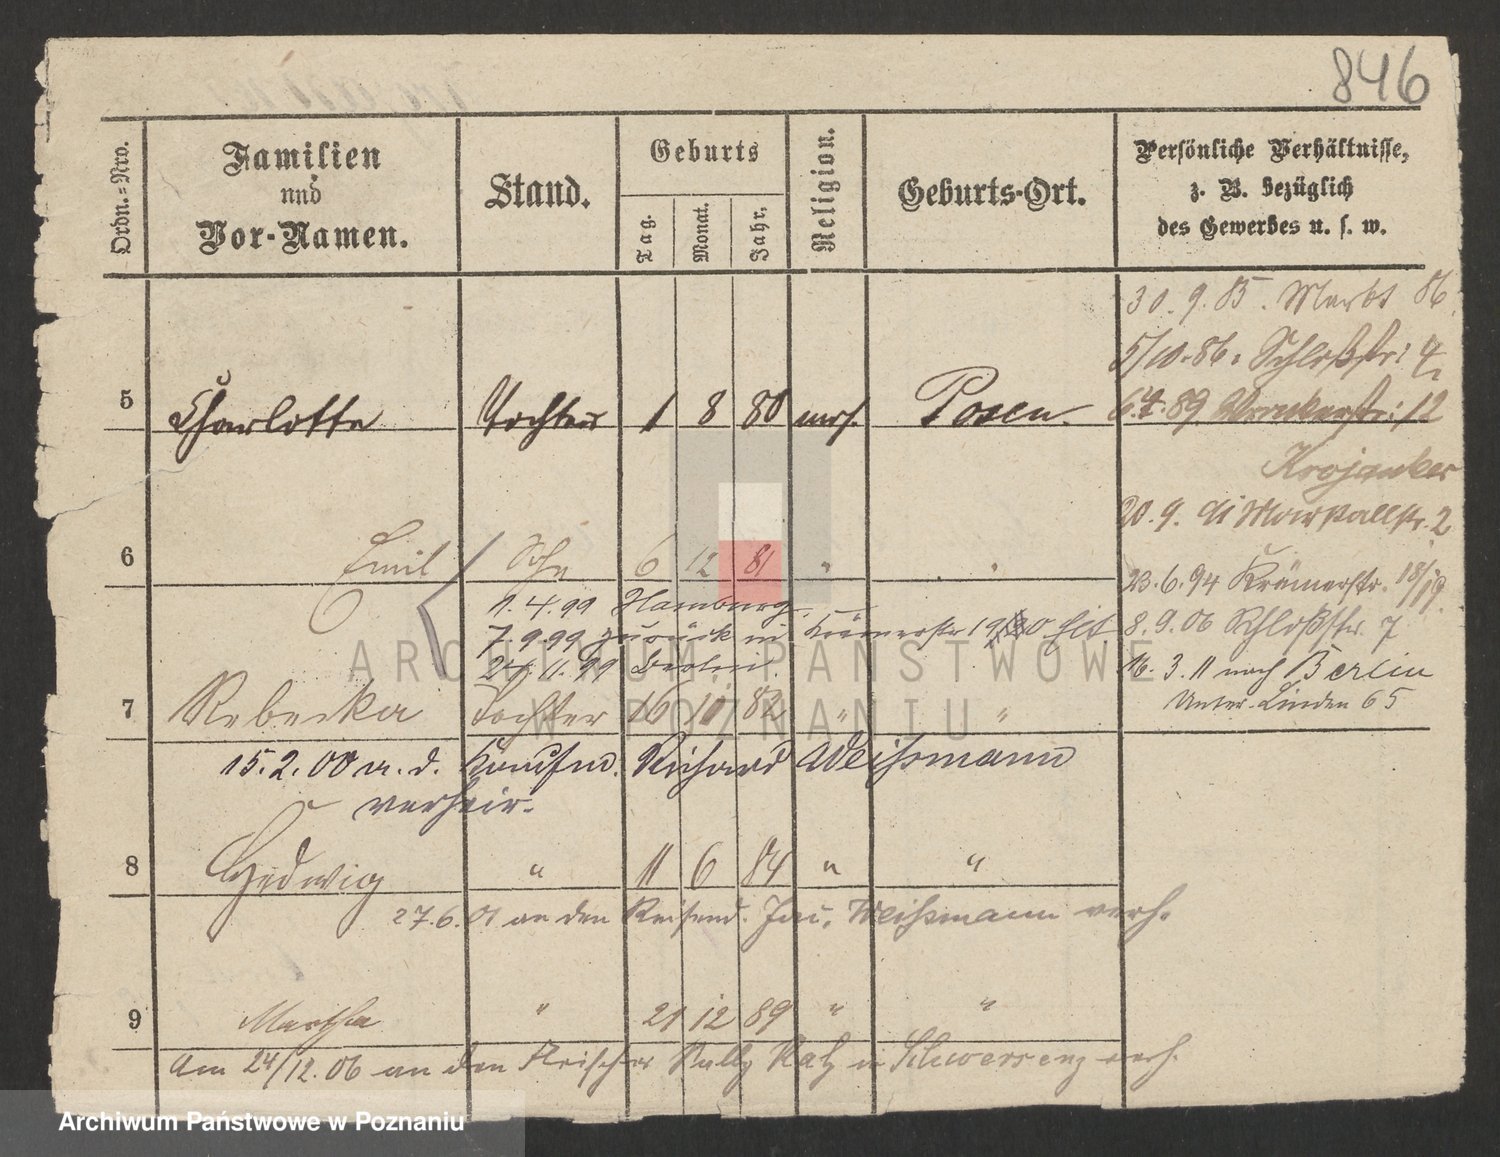 846
Ordn.=Nro.
Familien
und
Vor-Namen.
Stand.
Geburts
Tag.
Monat.
Jahr.
Religion.
Geburts-Ort.
Persönliche Verhältnisse,
z. B. bezüglich
des Gewerbes u. s. w.
30. 9. 85. Markt 86
5/10. 86. Schloßstr: 4
5 Charlotte Tochter 1 8 80 mos. Posen.
6.4.89. Wronkerstr: 12
Krojanker
20. 9. 91 Marstallstr. 2
6 Emil Sohn 6 12 81 " "
23. 6. 94 Krämerstr. 18/19.
1. 4. 99 Hamburg.
7. 9. 99 zurück in Krämerstr 19
8. 9. 06 Schloßstr. 7
24. 11. 99 Berlin.
16. 3. 11 nach Berlin
Unter Linden 65
7 Rebecka Tochter 16 11 82 " "
15. 2. 00 m. d. Kaufm. Richard Weißmann
verheir.
8 Hedwig " 11 6 84 " "
27. 6. 01 an den Reisend. Weißmann verh.
9 Martha " 21 12 89 " "
Am 24/12. 06 an den Fleischer Katz in Schwersenz verh.
ARCHIWUM PAŃSTWOWE
W POZNANIU
Archiwum Państwowe w Poznaniu